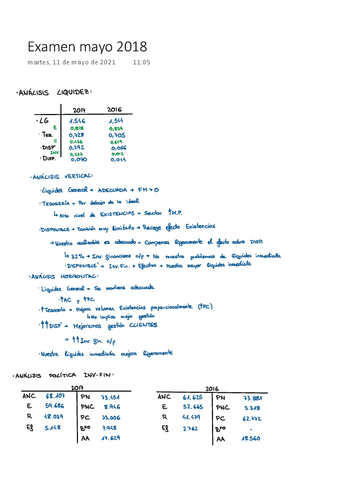 Examen mayo 2018
martes, 11 de mayo de 2021 11:05
· ANÁLISIS LIQUIDEZ:
2017 2016
· LG 1,546 1,544
E 0,818 0,839
· Tes. 0,728 0,705
C 0,436 0,619
· DISP' 0,292 0,086
INV 0,012
· Disp. 0,070 0,014
· ANÁLISIS VERTICAL:
· Liquidez General → ADECUADA → FM > 0
· TESORERÍA → Por debajo de lo ideal
↳ Alto nivel de EXISTENCIAS → Sector
· DISPONIBLE → También muy limitado → Recoge efecto Existencias
→ Nuestro realizable es adecuado → Compensa ligeramente el efecto sobre DISP.
↳ 32% → Inv. Financiera c/p → No muestra problemas de liquidez inmediata
· DISPONIBLE' → Inv. Fin. + Efectivo → Nuestra mayor liquidez inmediata
· ANÁLISIS HORIZONTAL:
· Liquidez General → Se mantiene adecuada
↑AC y ↑PC
· ↑Tesorería → Mejora volumen Existencias proporcionalmente (↑PC)
↳ No implica mejor gestión
· ↑↑DISP' → Mejoramos gestión CLIENTES
→ ↑↑Inv. fin. c/p
· Nuestra liquidez inmediata mejora ligeramente
· ANÁLISIS POLÍTICA INV-FIN:
2017 2016
ANC 68.107 PN 73.454 ANC 61.625 PN 73.881
E 59.686 PNC 8.946 E 52.665 PNC 3.218
R 48.039 PC 73.006 R 41.479 PC 62.772
Ef 5.148 Bº 7.948 Ef 2.762 Bº -
AA 17.629 AA 18.560